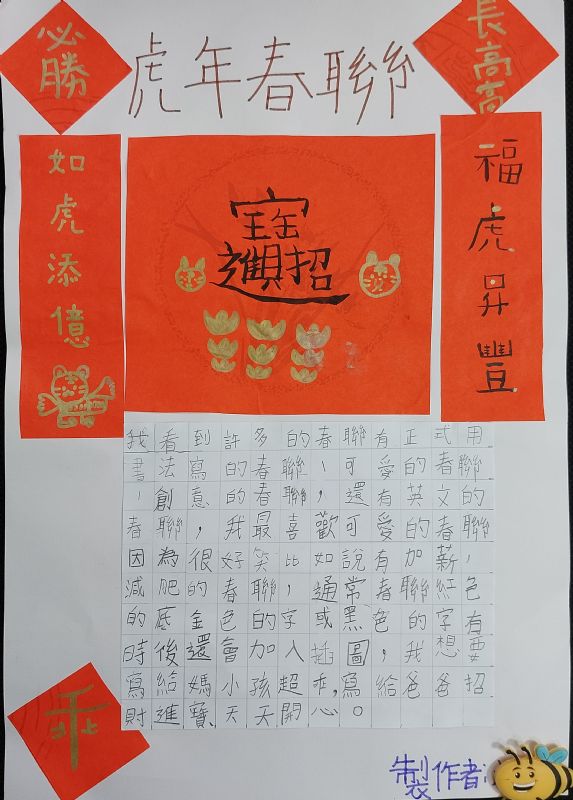 虎年春聯
必勝
長高高
如虎添億
招財進寶
福虎昇豐
我看到許多的春聯有正式用
書法寫的春聯、可愛的春聯
、創意的春聯,還有英文的
春聯,我最喜歡可愛的春聯
因為很好笑比如說有加薪,
減肥的春聯,通常春聯紅色
的底金色的字或黑色的字有
時後還會加入插圖,我想要
寫給媽小孩超乖,寫給爸爸招
財進寶天天開心。
乖
製作者: